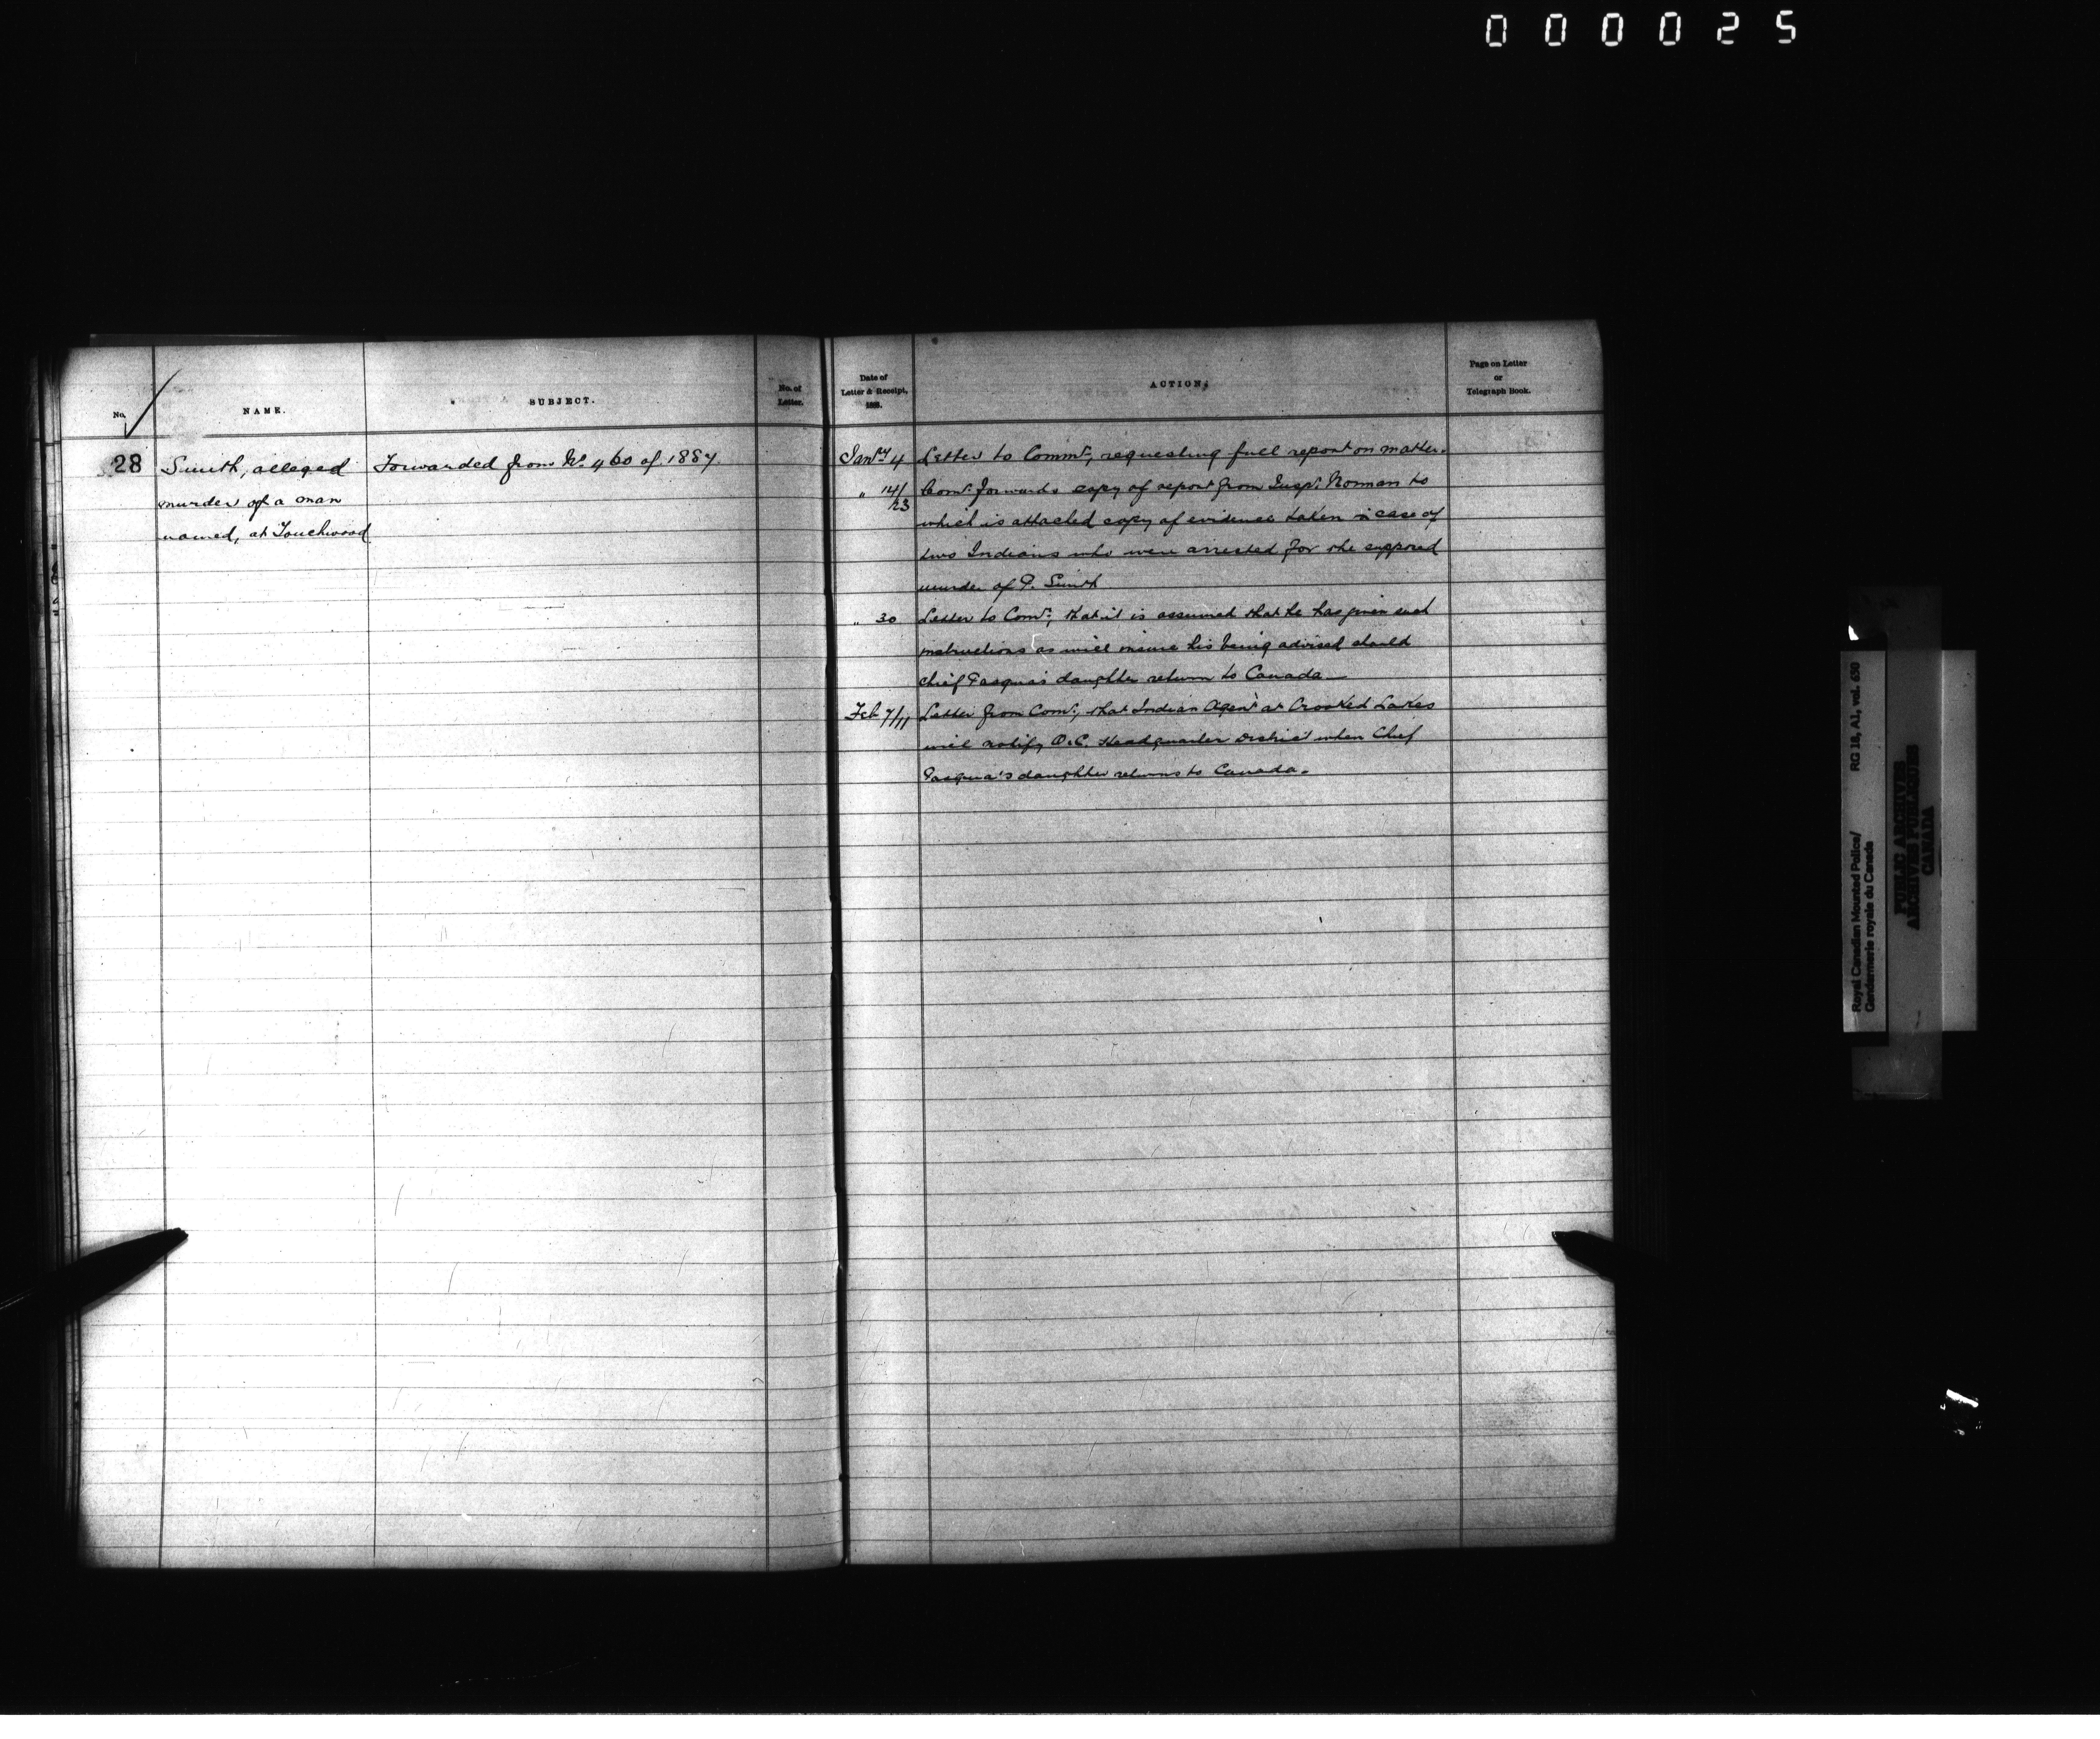 000025
No.
NAME.
SUBJECT.
No. of
Letter.
Date of
Letter & Receipt,
188.
ACTION.
Page on Letter
or
Telegraph Book.
28
Smith, alleged
murder of a man
named, at Touchwood
Forwarded from No. 460 of 1887.
Jany 4 Letter to Commr, requesting full report on matter.
" 14/23 Comr. forwards copy of report from Inspr. Norman to
which is attached copy of evidence taken in case of
two Indians who were arrested for the supposed
murder of P. Smith
" 30 Letter to Comr; that it is assumed that he has given such
instructions as will insure his being advised should
chief Pasqua's daughter return to Canada
Feb 7/11 Letter from Comr; that Indian Agent at Crooked Lakes
will notify O.C. Headquarter District when Chief
Pasqua's daughter returns to Canada.
Royal Canadian Mounted Police/
Gendarmerie royale du Canada
RG 18, A1, vol. 650
PUBLIC ARCHIVES
ARCHIVES PUBLIQUES
CANADA